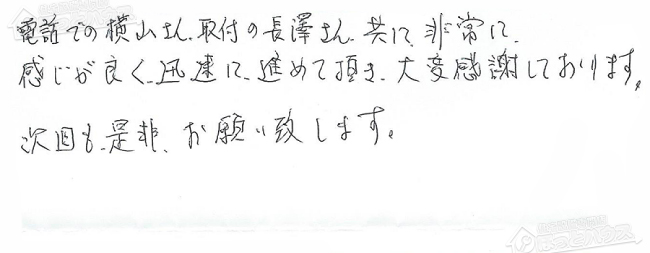 電話での横山さん、取付の長澤さん、共に、非常に、
感じが良く、迅速に、進めて頂き、大変感謝しております。
次回も、是非、お願い致します。